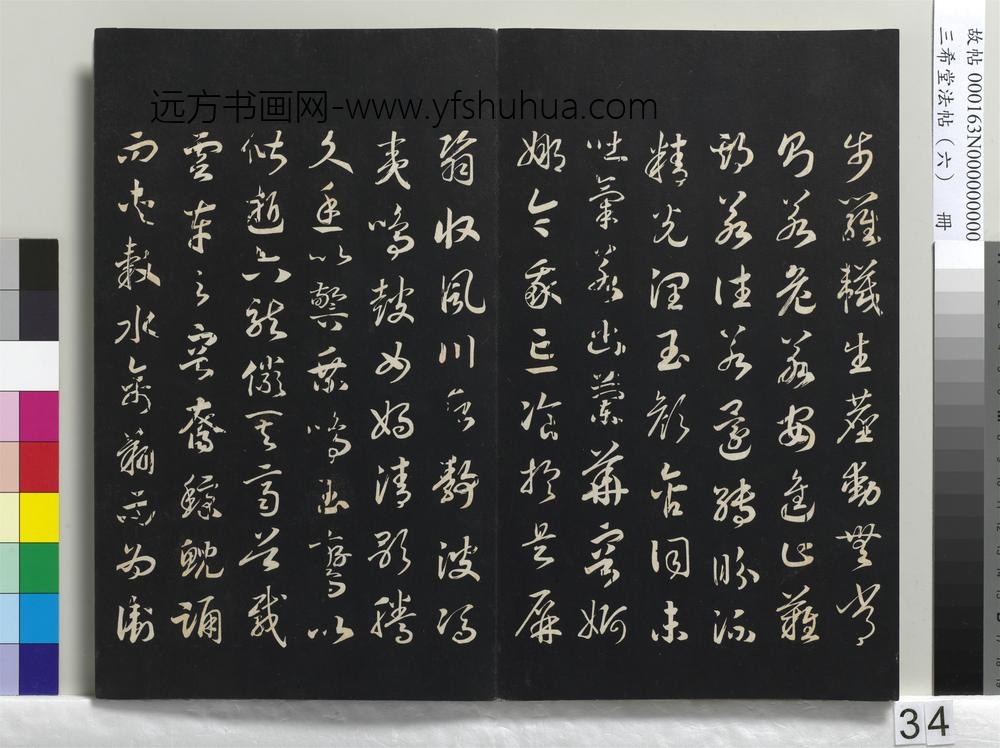 远方书画网-www.yfshuhua.com
故帖 000163N000000000
三希堂法帖（六） 冊
步羅襪生塵動無常
則若危若安進止難
期若往若還轉眄流
精光潤玉顏含詞未
吐氣若幽蘭華容婀
娜令我忘飡於是屏
翳收風川后靜波馮
夷鳴鼓女媧清歌騰
文魚以警乘鳴玉鸞以
偕逝六龍儼其齊首載
雲車之容裔鯨鯢踊
而夾轂水禽翔而為衛
34